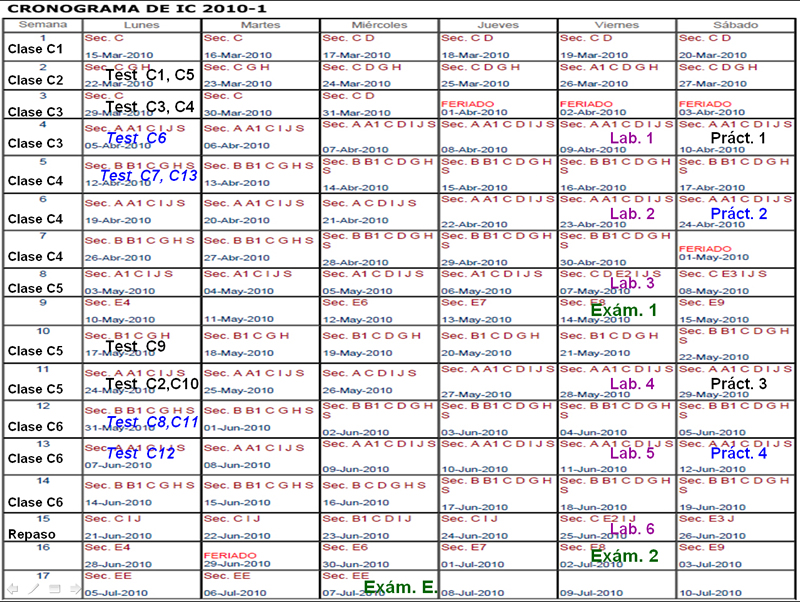 CRONOGRAMA DE IC 2010-1
Semana Lunes Martes Miércoles Jueves Viernes Sábado
1 Sec. C Sec. C Sec. C D Sec. C D Sec. C D Sec. C D
Clase C1 15-Mar-2010 16-Mar-2010 17-Mar-2010 18-Mar-2010 19-Mar-2010 20-Mar-2010
2 Sec. C G H Sec. C G H Sec. C D G H Sec. C D G H Sec. A1 C D G H Sec. C D G H
Test C1, C5
Clase C2 22-Mar-2010 23-Mar-2010 24-Mar-2010 25-Mar-2010 26-Mar-2010 27-Mar-2010
3 Sec. C Sec. C Sec. C D FERIADO FERIADO FERIADO
Test C3, C4
Clase C3 29-Mar-2010 30-Mar-2010 31-Mar-2010 01-Abr-2010 02-Abr-2010 03-Abr-2010
4 Sec. A A1 C I J S Sec. A A1 C I J S Sec. A A1 C D I J S Sec. A A1 C D I J S Sec. A A1 C D I J S Sec. A A1 C D I J S
Test C6 Lab. 1 Práct. 1
Clase C3 05-Abr-2010 06-Abr-2010 07-Abr-2010 08-Abr-2010 09-Abr-2010 10-Abr-2010
5 Sec. B B1 C G H S Sec. B B1 C G H S Sec. B B1 C D G H S Sec. B B1 C D G H S Sec. B B1 C D G H S Sec. B B1 C D G H S
Test C7, C13
Clase C4 12-Abr-2010 13-Abr-2010 14-Abr-2010 15-Abr-2010 16-Abr-2010 17-Abr-2010
6 Sec. A A1 C I J S Sec. A A1 C I J S Sec. A C D I J S Sec. A A1 C D I J S Sec. A A1 C D I J S Sec. A A1 C D I J S
Lab. 2 Práct. 2
Clase C4 19-Abr-2010 20-Abr-2010 21-Abr-2010 22-Abr-2010 23-Abr-2010 24-Abr-2010
7 Sec. B B1 C G H S Sec. B B1 C G H S Sec. B B1 C D G H S Sec. B B1 C D G H S Sec. B B1 C D G H S FERIADO
Clase C4 26-Abr-2010 27-Abr-2010 28-Abr-2010 29-Abr-2010 30-Abr-2010 01-May-2010
8 Sec. A1 C I J S Sec. A1 C I J S Sec. A1 C D I J S Sec. A1 C D I J S Sec. C D E2 I J S Sec. C E3 I J S
Lab. 3
Clase C5 03-May-2010 04-May-2010 05-May-2010 06-May-2010 07-May-2010 08-May-2010
9 Sec. E4 Sec. E6 Sec. E7 Sec. E8 Sec. E9
Exám. 1
10-May-2010 11-May-2010 12-May-2010 13-May-2010 14-May-2010 15-May-2010
10 Sec. B1 C G H Sec. B1 C G H Sec. B1 C D G H Sec. B1 C D G H Sec. B1 C D G H Sec. B B1 C D G H S
Test C9
Clase C5 17-May-2010 18-May-2010 19-May-2010 20-May-2010 21-May-2010 22-May-2010
11 Sec. A A1 C I J S Sec. A A1 C I J S Sec. A C D I J S Sec. A A1 C D I J S Sec. A A1 C D I J S Sec. A A1 C D I J S
Test C2,C10 Lab. 4 Práct. 3
Clase C5 24-May-2010 25-May-2010 26-May-2010 27-May-2010 28-May-2010 29-May-2010
12 Sec. B B1 C G H S Sec. B B1 C G H S Sec. B B1 C D G H S Sec. B B1 C D G H S Sec. B B1 C D G H S Sec. B B1 C D G H S
Test C8,C11
Clase C6 31-May-2010 01-Jun-2010 02-Jun-2010 03-Jun-2010 04-Jun-2010 05-Jun-2010
13 Sec. A A1 C I J S Sec. A A1 C I J S Sec. A A1 C D I J S Sec. A A1 C D I J S Sec. A A1 C D I J S Sec. A A1 C D I J S
Test C12 Lab. 5 Práct. 4
Clase C6 07-Jun-2010 08-Jun-2010 09-Jun-2010 10-Jun-2010 11-Jun-2010 12-Jun-2010
14 Sec. B B1 C G H S Sec. B B1 C G H S Sec. B C D G H S Sec. B B1 C D G H S Sec. B B1 C D G H S Sec. B B1 C D G H S
Clase C6 14-Jun-2010 15-Jun-2010 16-Jun-2010 17-Jun-2010 18-Jun-2010 19-Jun-2010
15 Sec. C I J Sec. C I J Sec. B1 C D I J Sec. C I J Sec. C E2 I J Sec. E3 J
Lab. 6
Repaso 21-Jun-2010 22-Jun-2010 23-Jun-2010 24-Jun-2010 25-Jun-2010 26-Jun-2010
16 Sec. E4 FERIADO Sec. E6 Sec. E7 Sec. E8 Sec. E9
Exám. 2
28-Jun-2010 29-Jun-2010 30-Jun-2010 01-Jul-2010 02-Jul-2010 03-Jul-2010
17 Sec. EE Sec. EE Sec. EE
Exám. E.
05-Jul-2010 06-Jul-2010 07-Jul-2010 08-Jul-2010 09-Jul-2010 10-Jul-2010